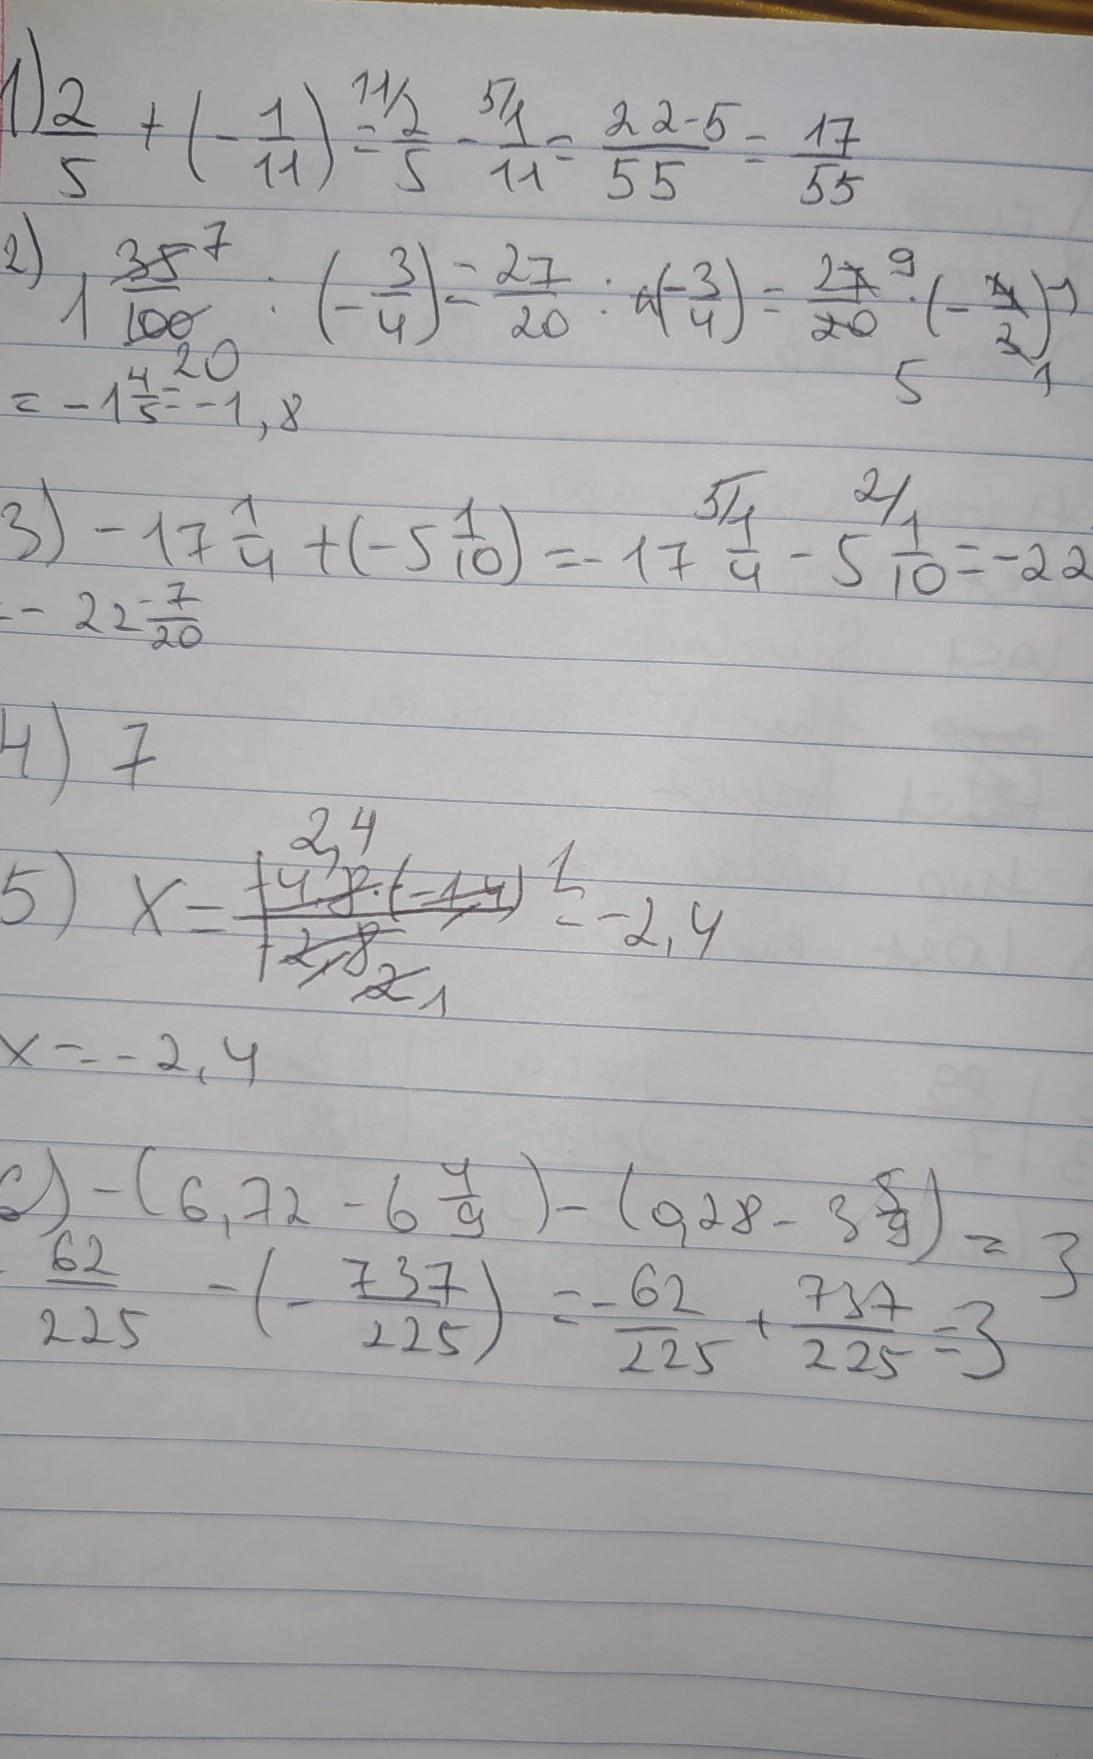 1) 2/5 + (-1/11) = 11/ 2/5 - 5/ 1/11 = 22-5/55 = 17/55
2) 1 35/100 7 20 : (-3/4) = 27/20 : (-3/4) = 27/20 9 5 · (-4/3) 1 1
= -1 4/5 = -1,8
3) -17 1/4 + (-5 1/10) = -17 5/ 1/4 - 5 2/ 1/10 = -22
= -22 7/20
4) 7
5) x = -4,8·(-1,4)/-2,8 2,4 1 2 1 = -2,4
x = -2,4
6) -(6,72 - 6 4/9) - (0,28 - 3 5/9) = 3
- 62/225 - (-737/225) = -62/225 + 737/225 = 3